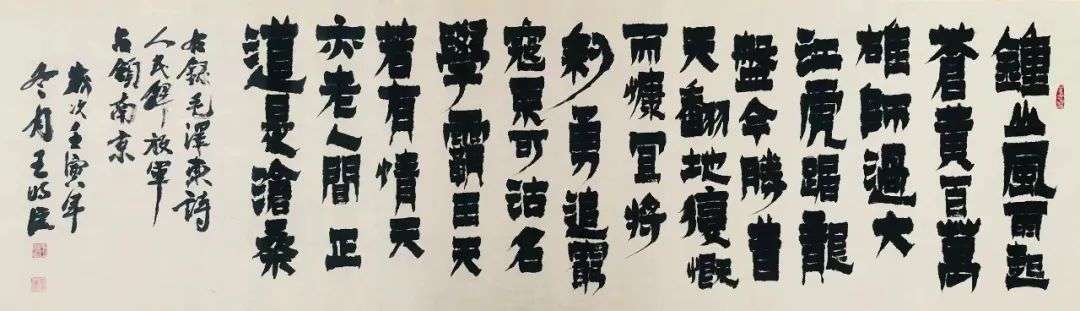 鍾山風雨起
蒼黃百萬
雄師過大
江虎踞龍
盤今勝昔
天翻地覆慨
而慷宜將
剩勇追窮
寇不可沽名
學霸王天
若有情天
亦老人間正
道是滄桑
右錄毛澤東詩
人民解放軍
占領南京
歲次壬寅年
冬月王